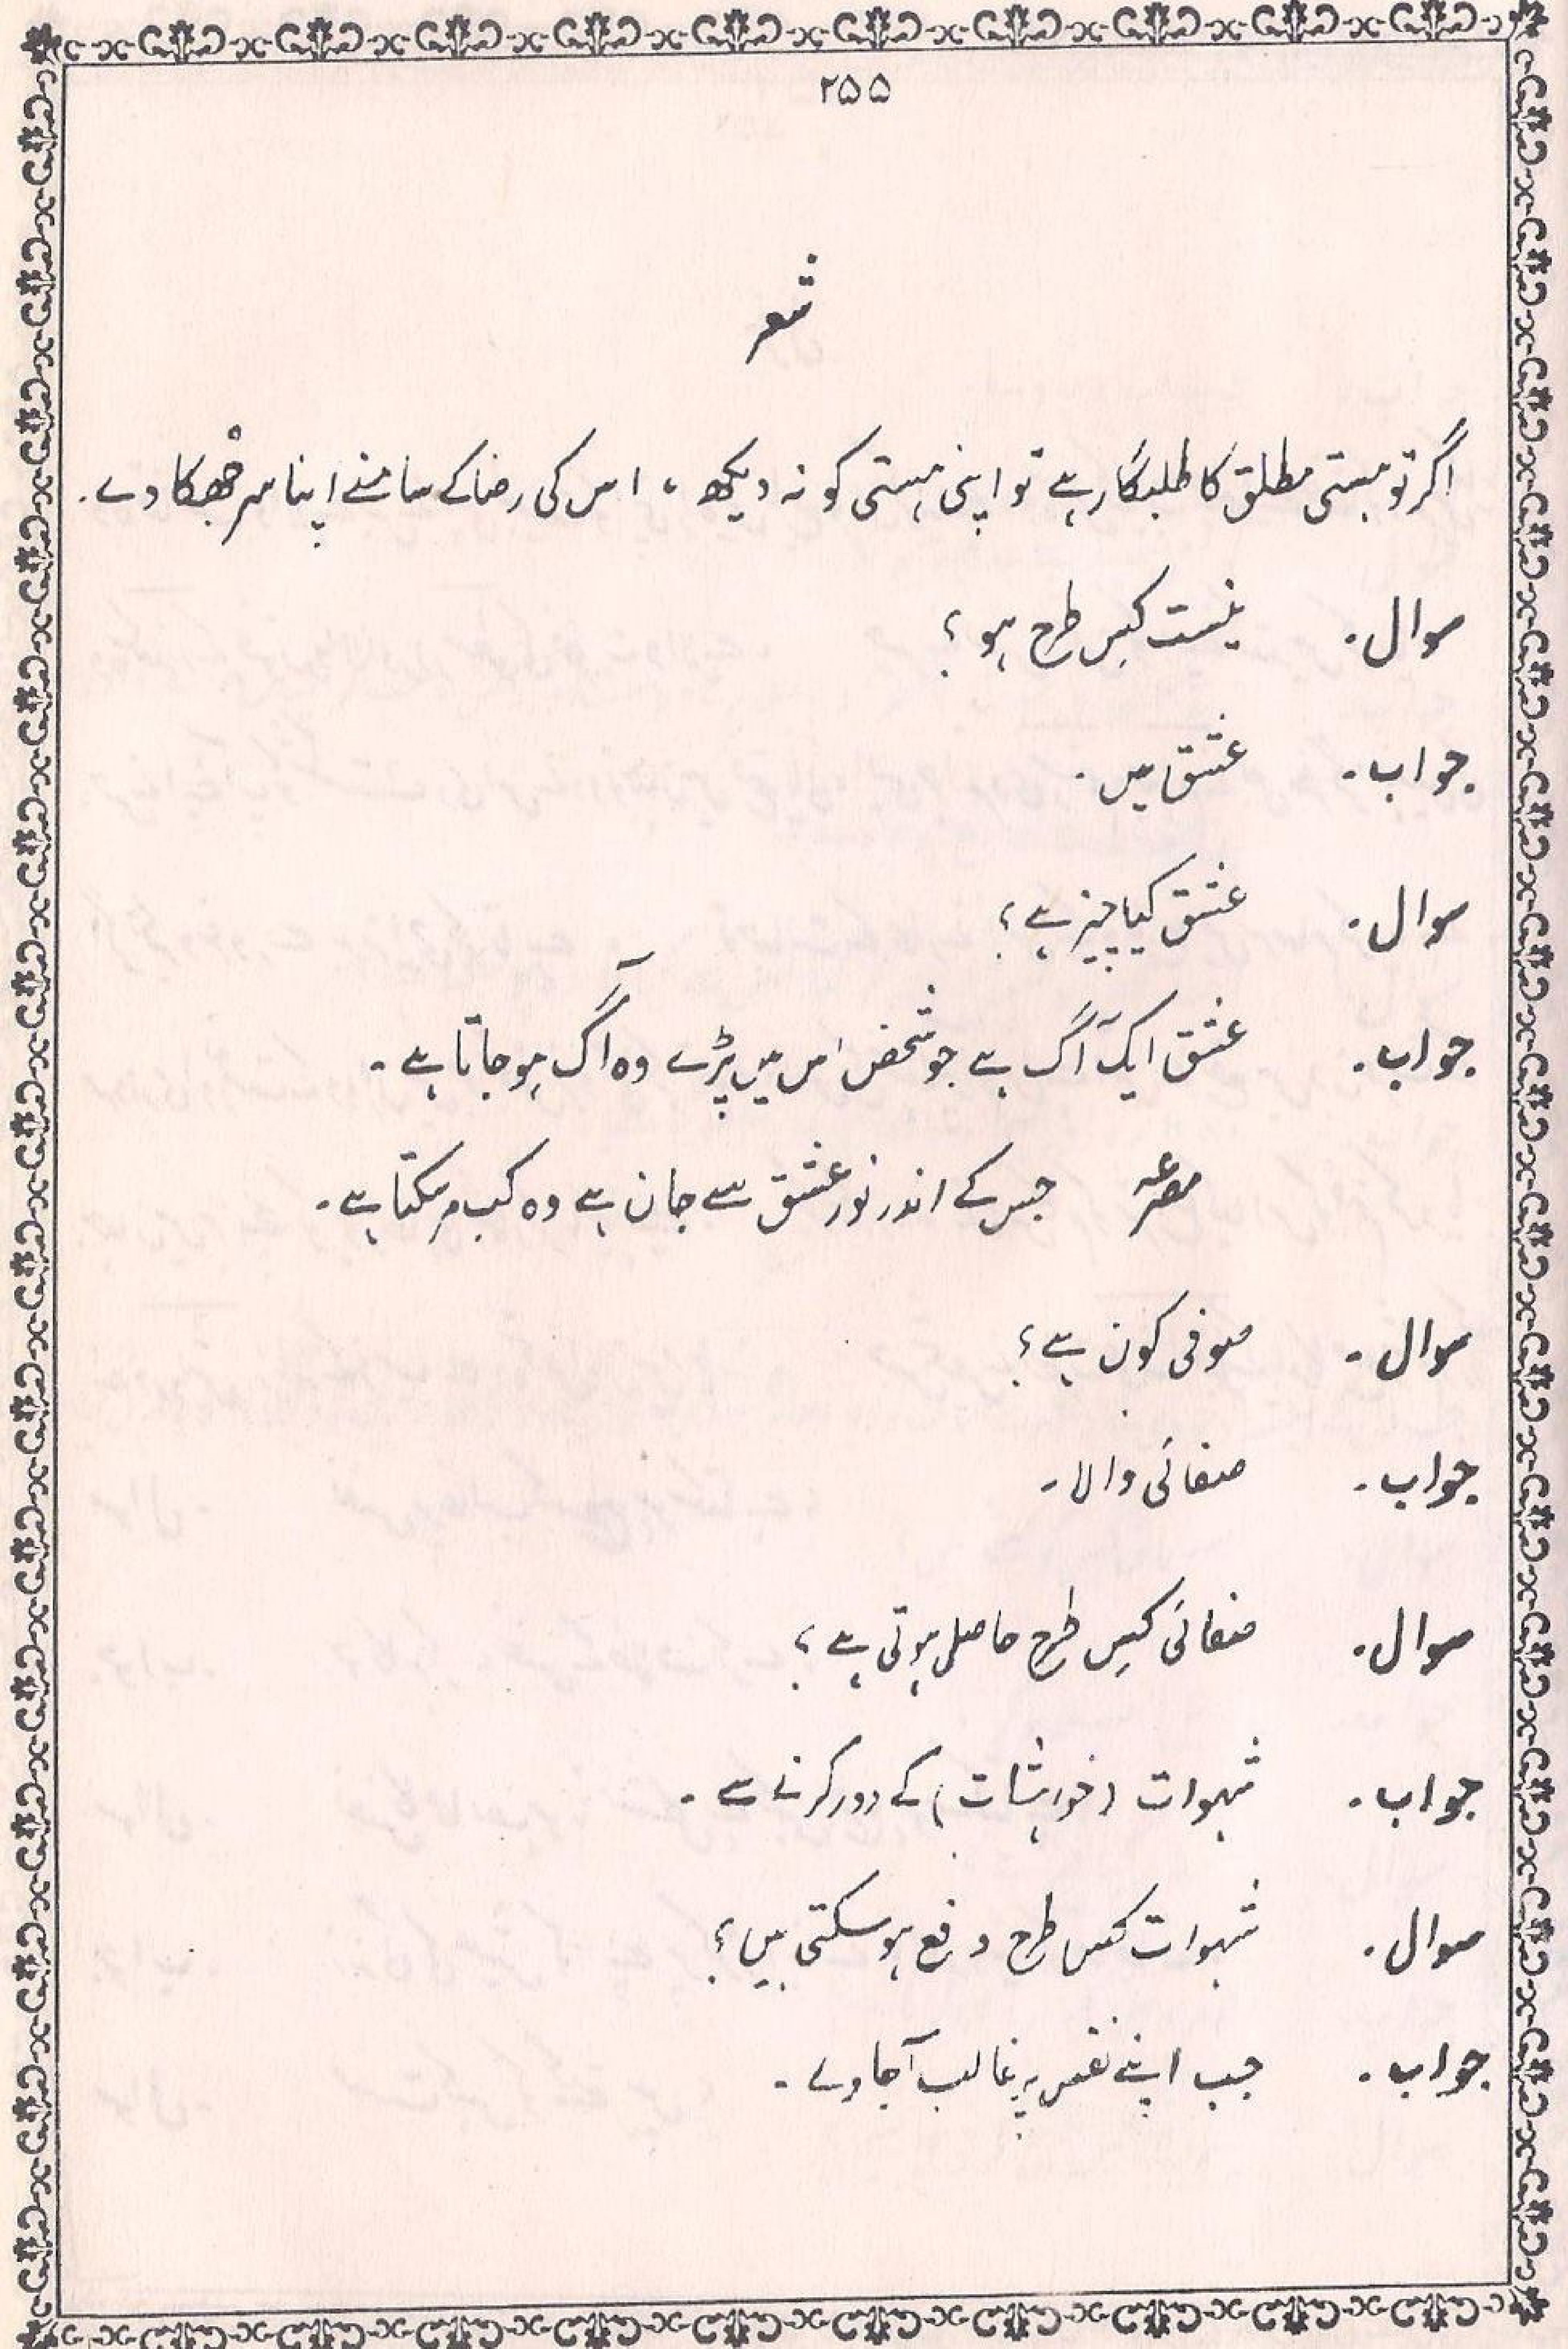 ۲۵۵
شعر
اگر تو ہستی مطلق کا طلبگار ہے تو اپنی ہستی کو نہ دیکھ ، اس کی رضا کے سامنے اپنا سر جُھکا دے۔
سوال۔ نیست کس طرح ہو ؟
جواب۔ عشق میں۔
سوال۔ عشق کیا چیز ہے ؟
جواب۔ عشق ایک آگ ہے جو شخص اس میں پڑے وہ آگ ہو جاتا ہے۔
مصرعہ جس کے اندر نور عشق سے جان ہے وہ کب مر سکتا ہے۔
سوال۔ صوفی کون ہے ؟
جواب۔ صفائی والا۔
سوال۔ صفائی کس طرح حاصل ہوتی ہے ؟
جواب۔ شہوات (خواہشات) کے دور کرنے سے۔
سوال۔ شہوات کس طرح دفع ہو سکتی ہیں ؟
جواب۔ جب اپنے نفس پہ غالب آ جاوے۔